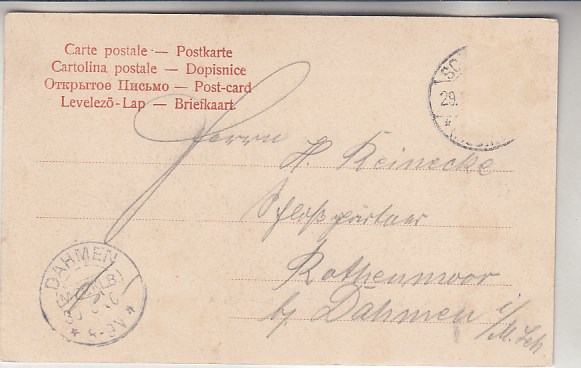 Carte postale — Postkarte
Cartolina postale — Dopisnice
Открытое Письмо — Post-card
Levelező-Lap — Briefkaart
Herrn
H. Reinecke
Schloßgärtner
Rothenmoor
b. Dahmen i/M. Sch.
SC
29.
DAHMEN